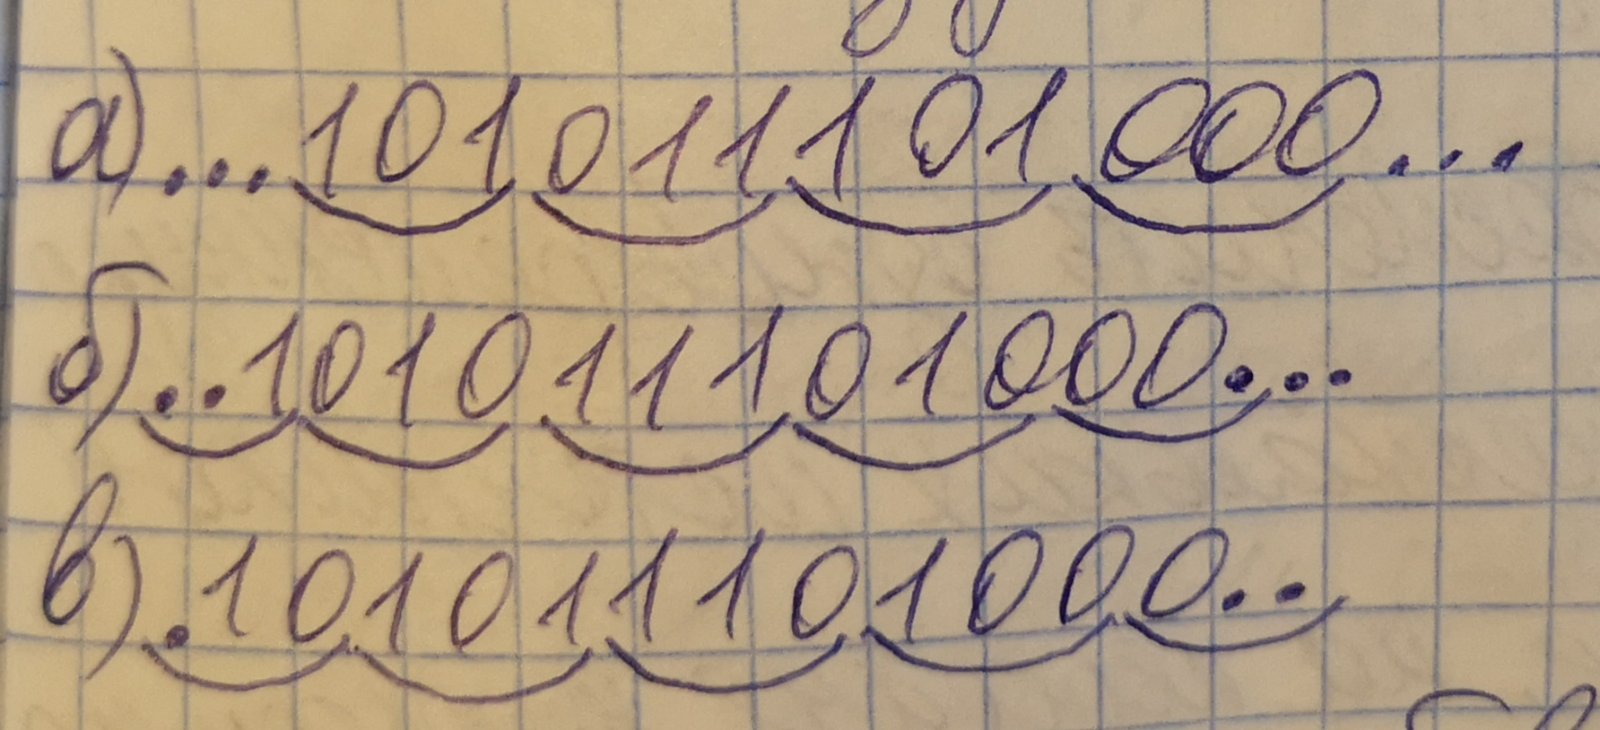 а)...101011101000...
б)..101011101000...
в).101011101000..